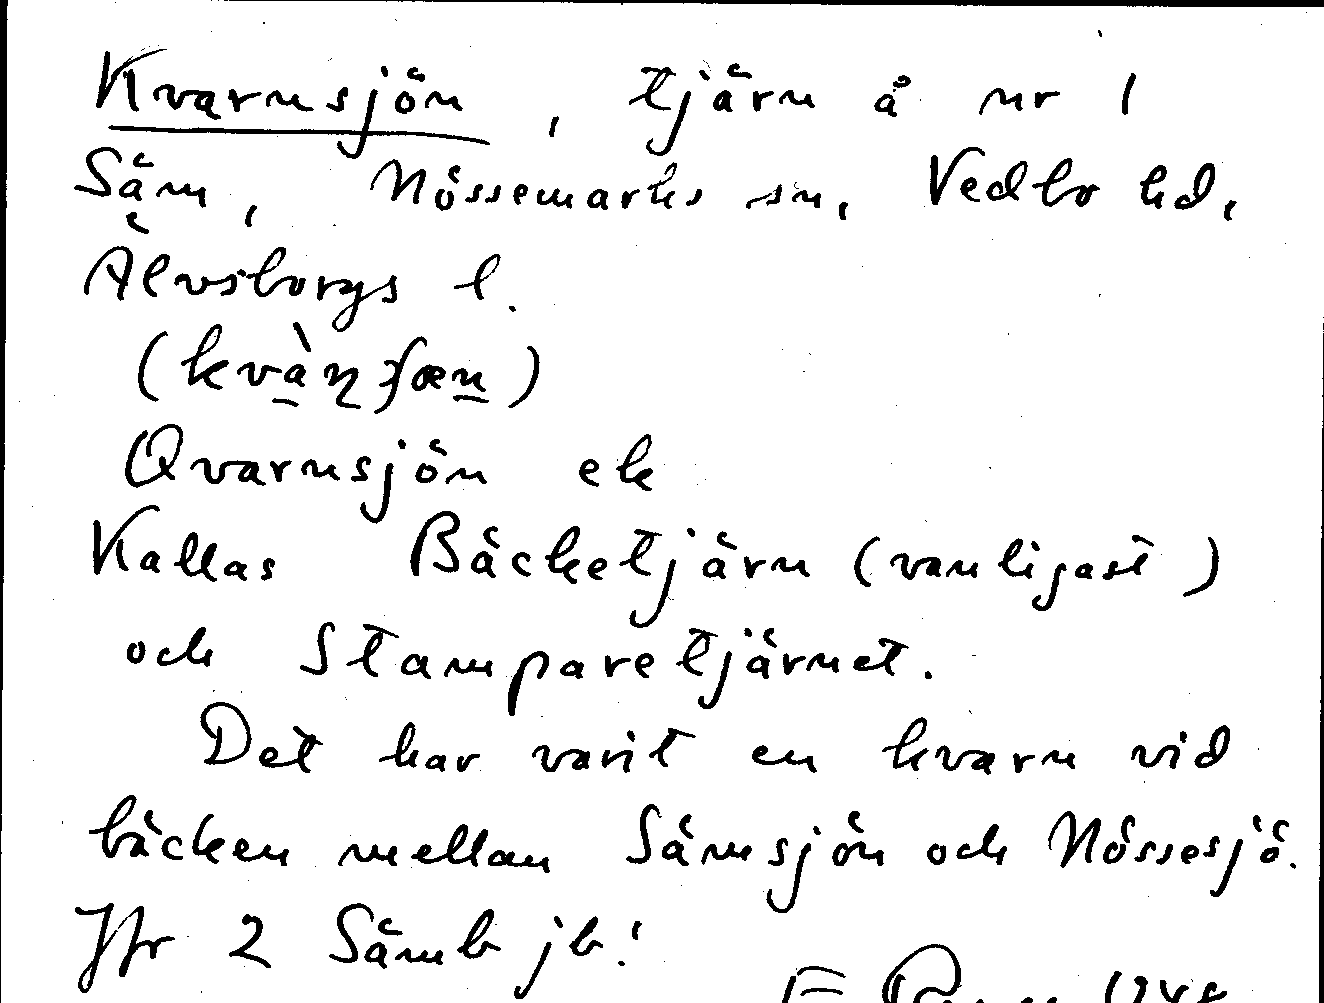 Kvarnsjön, tjärn å nr 1
Säm, Nössemarks sn, Vedbo hd,
Älvsborgs l.
(kvàn̩ʃœn)
Qvarnsjön ek
Kallas Bäcketjärn (vanligast)
och Stamparetjärnet.
Det har varit en kvarn vid
bäcken mellan Sämsjön och Nössesjö.
Jfr 2 Sämb jb!